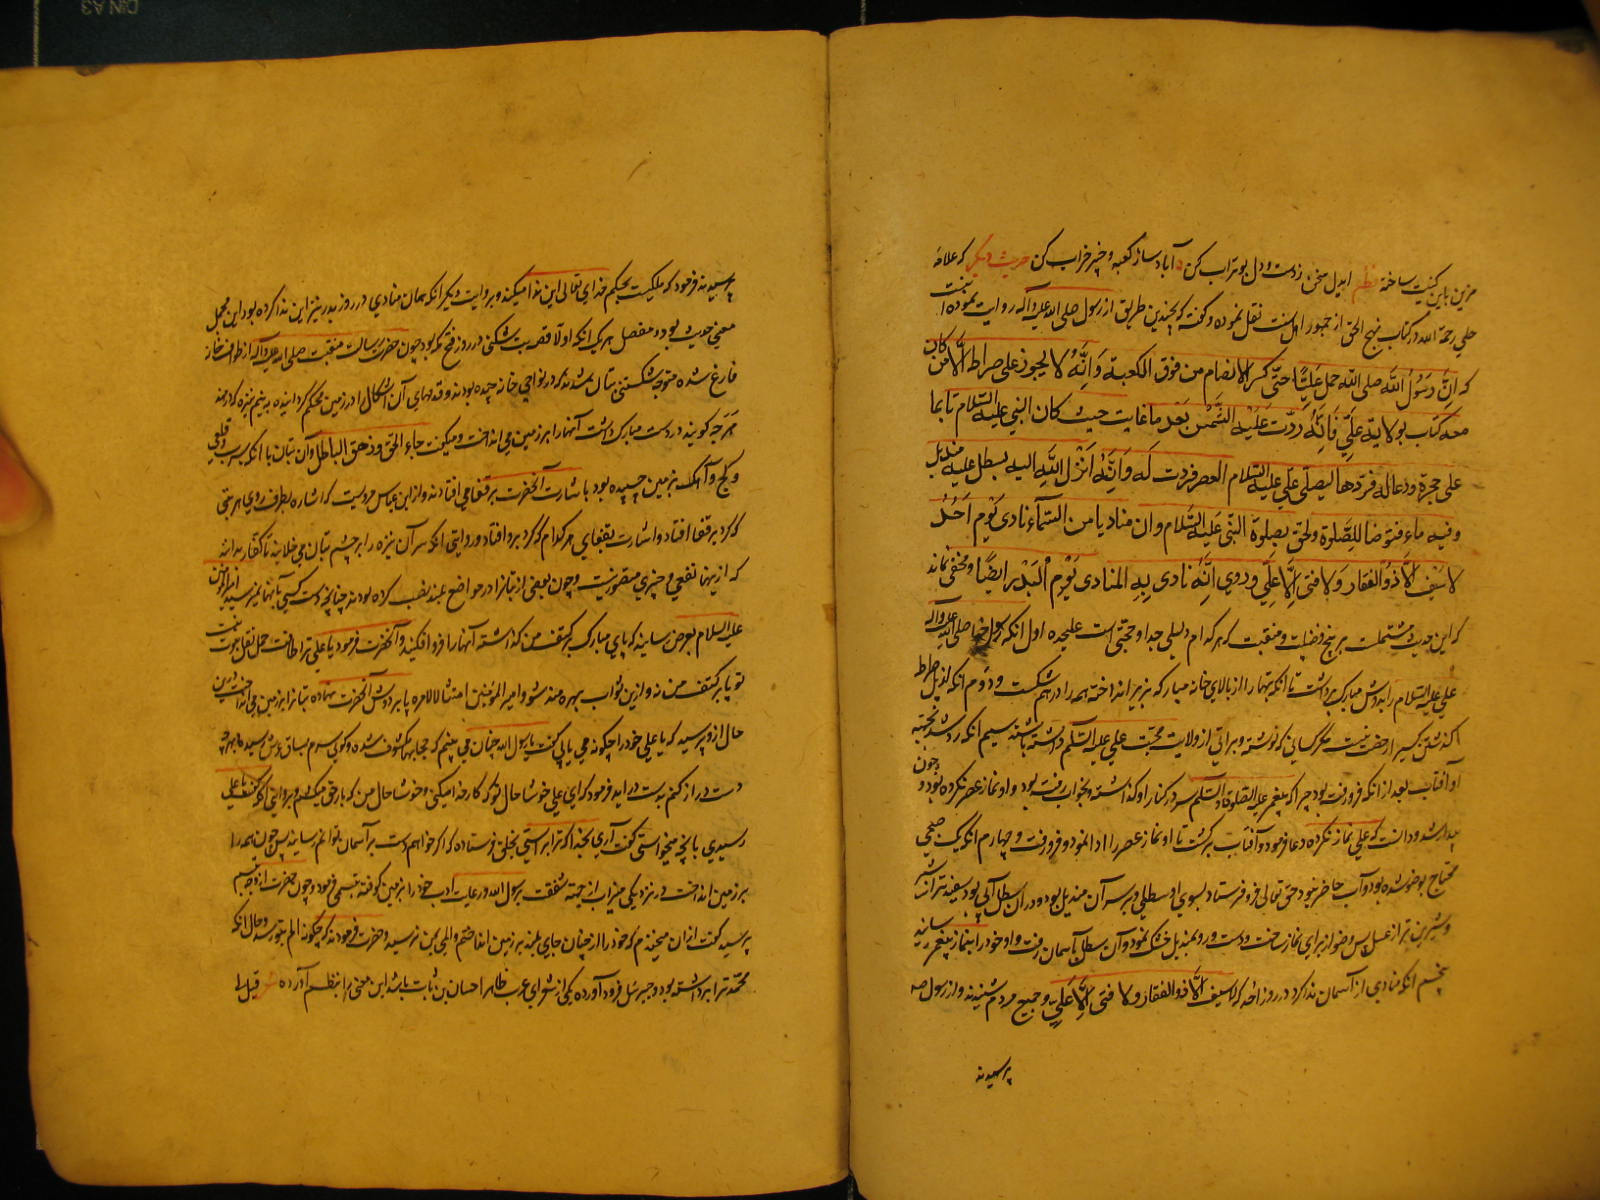 مزین باین کنیت ساخته نظم ایدل سخن زدست و دل بوتراب کن آباد ساز کعبه و خیبر خراب کن حدیث دیگر که علامه
حلی رحمة الله در کتاب نهج الحق از جمهور اهل سنت نقل نموده و گفته که بچندین طریق از رسول صلی الله علیه وآله روایت نموده اند
که ان رسول الله صلی الله حمل علیا حتی کسر الاصنام من فوق الکعبة وانه لا یجوز علی صراط الا من کان
معه کتاب بولایة علی فانه ردت علیه الشمس بعد ما غابت حیث کان النبی علیه السلام نایما
علی حجره ودعا له فردها لیصلی علی علیه السلام العصر فردت له وانه انزل الله الیه بسطل علیه مندیل
وفیه ماء فتوضا للصلوة ولحق بصلوة النبی علیه السلام وان منادیا من السماء نادی یوم احد
لا سیف الا ذو الفقار ولا فتی الا علی وروی انه نادی به المنادی یوم البدر ایضا و مخفی نماند
که این حدیث مشتملست بر پنج فضیلت و منقبت که هر کدام دلیلی جدا و حجتی است علیحده اول آنکه رسول خدا صلی الله علیه وآله
علی علیه السلام را بدوش مبارک برداشت تا آنکه بتها را از بالای خانه مبارکه بزیر انداخته همه را در هم شکست و دوم آنکه از پل صراط
گذشتن کسیرا رخصت نیست مگر کسانی که نوشته و براتی از ولایت محبت علی علیه السلام داشته باشند سیم آنکه رد شد بجهة
او آفتاب بعد از آنکه فرو رفته بود چرا که پیغمبر علیه الصلوة والسلم سر در کنار او گذاشته و بخواب رفته بود و او نماز عصر نکرده بود و چون
بیدار شد و دانست که علی نماز نکرده دعا فرمود و آفتاب برگشت تا او نماز عصر را ادا نمود و فرو رفت و چهارم آنکه یک صبحی
محتاج بوضو شده بود و آب حاضر نبود حق تعالی فرو فرستاد بسوی او سطلی و بر سر آن مندیل بود و در آن سطل آبی بود سفیدتر از شیر
و شیرین تر از عسل پس وضو از برای نماز ساخت و دست و رو بمندیل خشک نمود و آن سطل بآسمان رفت و او خود را بنماز پیغمبر رسانید
پنجم آنکه منادی از آسمان ندا کرد در روز احد که لا سیف الا ذو الفقار ولا فتی الا علی و جمیع مردم شنیدند و از رسول صه
پرسیدند
پرسیدند فرمود که ملکیست بحکم خدای تعالی این ندا میکند و بروایت دیگر آنکه همان منادی در روز بدر نیز این ندا کرده بود این مجمل
معنی حدیث بود و مفصل هر یک آنکه اولا قصه بت شکنی در روز فتح مکه بود چون حضرت رسالت منقبت صلی الله علیه وآله از طواف خانه
فارغ شده متوجه شکستن بتان شدند که در نواحی خانه چیده بودند و قدمهای آن اشکال را در زمین محکم گردانیده به نیم نیزه که در عهد
هرچه گویند در دست مبارک داشت آنها را بر زمین می انداخت و میگفت جاء الحق وزهق الباطل و آن بتان با آنکه به سرب و قلعی
و گچ و آهک بزمین چسپیده بود باشارت آنحضرت بر قفا می افتادند و از ابن عباس مرویست که اشاره بطرف روی هر بتی
که کرد بر قفا افتاد و اشارت بقفای هر کدام که کرد برو افتاد و روایتی آنکه سر آن نیزه را بر چشم بتان می خلانید تا کفار بدانند
که ازینها نفعی و ضرری متصور نیست و چون بعضی از بتانرا در مواضع بلند نصب کرده بودند چنانچه دست کسی بآنها نمیرسید امیر المؤمنین
علیه السلام بعرض رسانید که پای مبارک بر کتف من گذاشته آنها را فرو افکنید و آنحضرت فرمود یا علی ترا طاقت حمل ثقل نبوت نیست
تو پا بر کتف من نه و ازین ثواب بهره مند شو امیر المؤمنین امتثالا لامره پا بر دوش آنحضرت نهاده بتانرا بر زمین می انداخت درین
حال ازو پرسید که یا علی خود را چگونه می یابی گفت یا رسول الله چنان می بینم که حجابها مکشوف شده و گویی سرم بساق عرش رسیده و بهرچه
دست دراز کنم بدست در آید فرمود که ای علی خوشا حال تو که کار خدا میکنی و خوشا حال من که بار حق میکشم و بروایتی آنکه گفت یا علی
رسیدی بآنچه میخواستی گفت آری بخدا که ترا براستی بخلق فرستاده که اگر خواهم دست بر آسمان توانم رسانید پس چون همه را
بر زمین انداخت در نزدیکی میزاب از جهة شفقت برسول الله و رعایت ادب خود را بزمین کوفته تبسمی فرمود و چون حضرت از وجه تبسم
پرسید گفت از آن میخندم که خود را از چنان جای بلند بر زمین انداختم و المی بمن نرسید و حضرت فرمودند که چگونه الم بتو رسد و حال آنکه
محمد ترا برداشته بود و جبرئیل فرود آورده یکی از شعرای عرب ظاهرا حسان بن ثابت باشد این معنی را بنظم آورده شعر قیل لی